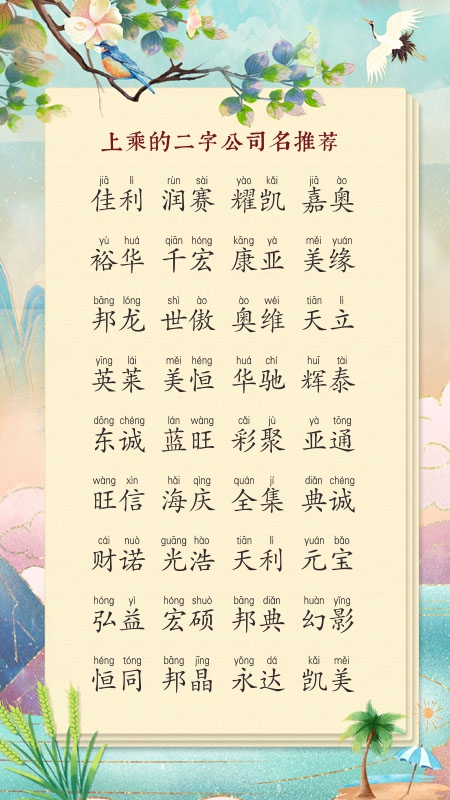 上乘的二字公司名推荐
jiā lì rùn sài yào kǎi jiā ào
佳利 润赛 耀凯 嘉奥
yù huá qiān hóng kāng yà měi yuán
裕华 千宏 康亚 美缘
bāng lóng shì ào ào wéi tiān lì
邦龙 世傲 奥维 天立
yīng lái měi héng huá chí huī tài
英莱 美恒 华驰 辉泰
dōng chéng lán wàng cǎi jù yà tōng
东诚 蓝旺 彩聚 亚通
wàng xìn hǎi qìng quán jí diǎn chéng
旺信 海庆 全集 典诚
cái nuò guāng hào tiān lì yuán bǎo
财诺 光浩 天利 元宝
hóng yì hóng shuò bāng diǎn huàn yǐng
弘益 宏硕 邦典 幻影
héng tóng bāng jīng yǒng dá kǎi měi
恒同 邦晶 永达 凯美